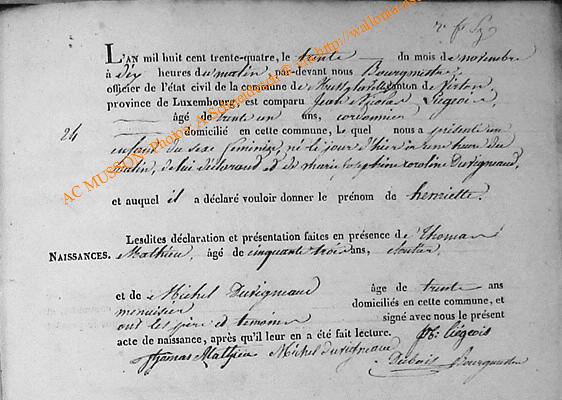 L'AN mil huit cent trente-quatre, le trente du mois de novembre
à dix heures du matin par-devant nous Bourgmestre
officier de l'état civil de la commune de canton de Virton
province de Luxembourg, est comparu Jean Nicolas Liegeois,
âgé de trente un ans, cordonnier
24
domicilié en cette commune, Lequel nous a présenté un
enfant du sexe féminin, né le jour d'hier à une heure du
matin, de lui déclarant et de marie josephine Duvigneaud,
et auquel il a déclaré vouloir donner le prénom de henriette.
Lesdites déclaration et présentation faites en présence de Thomas
NAISSANCES.
Mathieu, âgé de cinquante trois ans,
et de Michel Duvigneaud âge de trente ans
menuisier domiciliés en cette commune, et
ont les père et temoins signé avec nous le présent
acte de naissance, après qu'il leur en a été fait lecture.
Liégeois
thomas Mathieu Michel duvigneaud
Bourgmestre
AC MUSSON Photos A Schneider http://wallonia-as